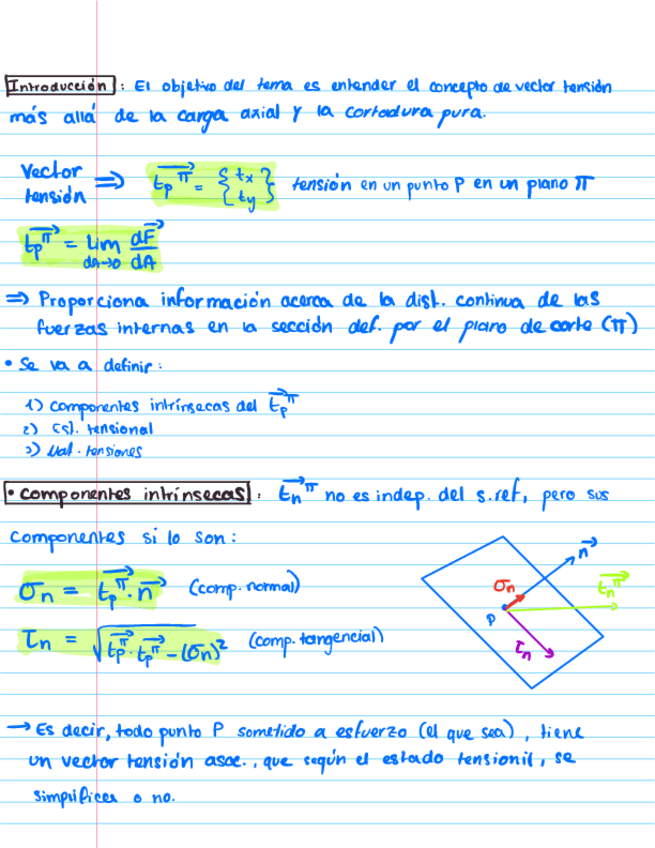 Introducción : El objetivo del tema es entender el concepto de vector tensión
más allá de la carga axial y la cortadura pura.
Vector tensión ⇒ $\vec{t_p}^{\pi} = \begin{Bmatrix} t_x \\ t_y \end{Bmatrix}$ tensión en un punto P en un plano π
$\vec{t_p}^{\pi} = \lim_{dA \to 0} \frac{d\vec{F}}{dA}$
⇒ Proporciona información acerca de la dist. continua de las
fuerzas internas en la sección def. por el plano de corte (π)
• Se va a definir:
1) componentes intrínsecas del $\vec{t_p}^{\pi}$
2) Est. tensional
3) Mat. tensiones
• componentes intrínsecas : $\vec{t_n}^{\pi}$ no es indep. del s.ref, pero sus
componentes si lo son:
$\sigma_n = \vec{t_p}^{\pi} \cdot \vec{n}$ (comp. normal)
$\tau_n = \sqrt{\vec{t_p}^{\pi} \cdot \vec{t_p}^{\pi} - (\sigma_n)^2}$ (comp. tangencial)
$\vec{n}$
$\sigma_n$
$\vec{t_n}^{\pi}$
P
$\tau_n$
→ Es decir, todo punto P sometido a esfuerzo (el que sea), tiene
un vector tensión asoc., que según el estado tensionil, se
simplifica o no.